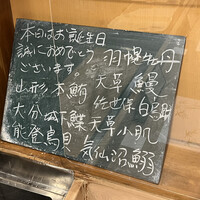 本日はお誕生日
誠におめでとう
ございます。
羽幌牡丹
山形 本鮪 天草 鰻
佐世保
大分 城下鰈 天草 小肌
能登鳥貝 気仙沼鰯